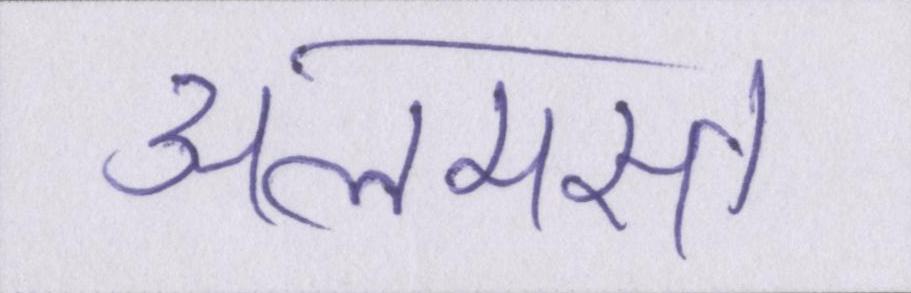 अलमस्त